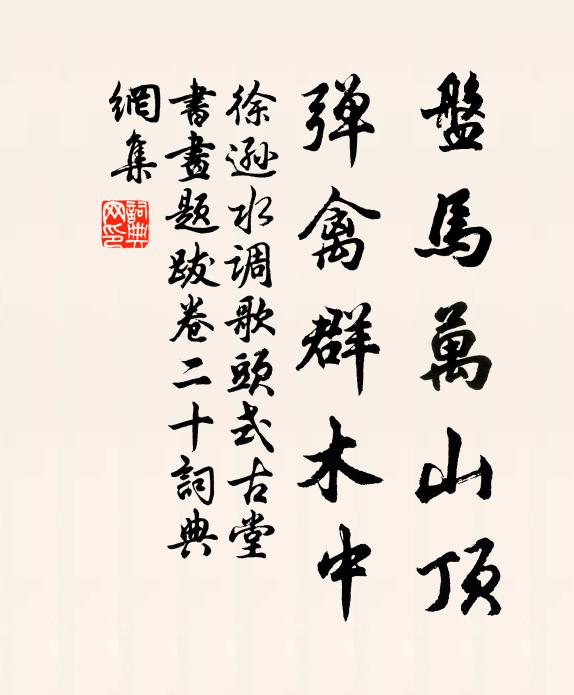 盤馬萬山頂
弹禽群木中
徐遜水调歌頭式古堂
書畫题跋卷二十詞典
網集
詞典网印